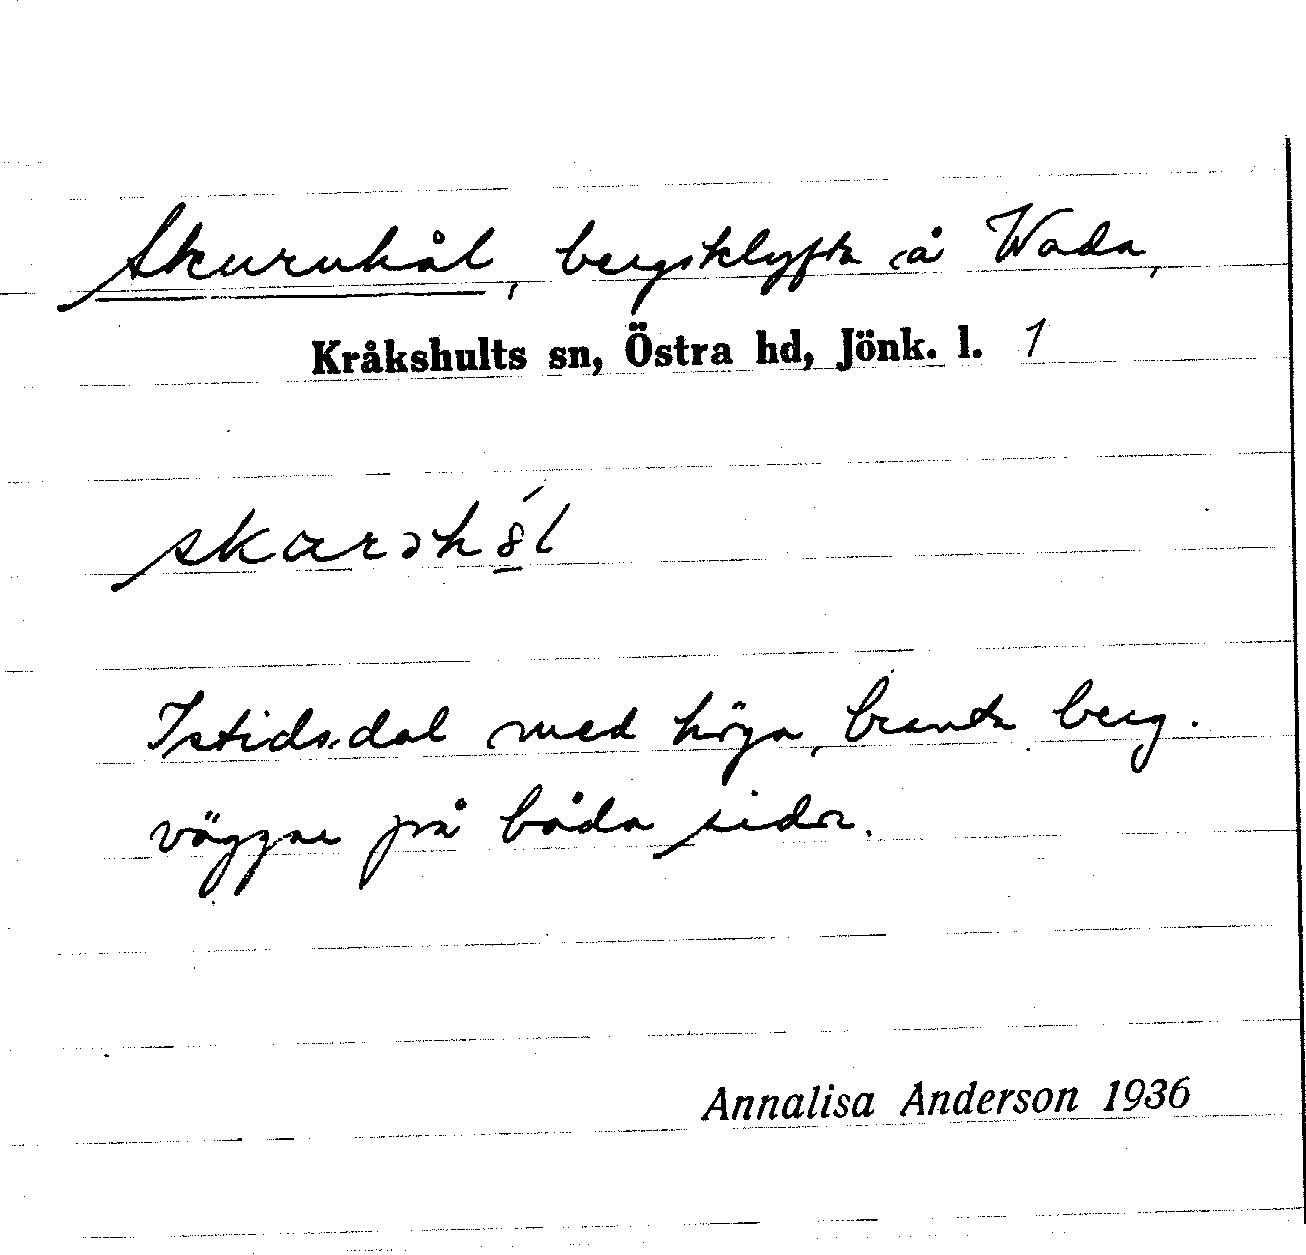 Skuruhål, bergsklyfta å Wada,
Kråkshults sn, Östra hd, Jönk. l. 1
Istidsdal med höga, branta berg-
väggar på båda sidor.
Annalisa Anderson 1936